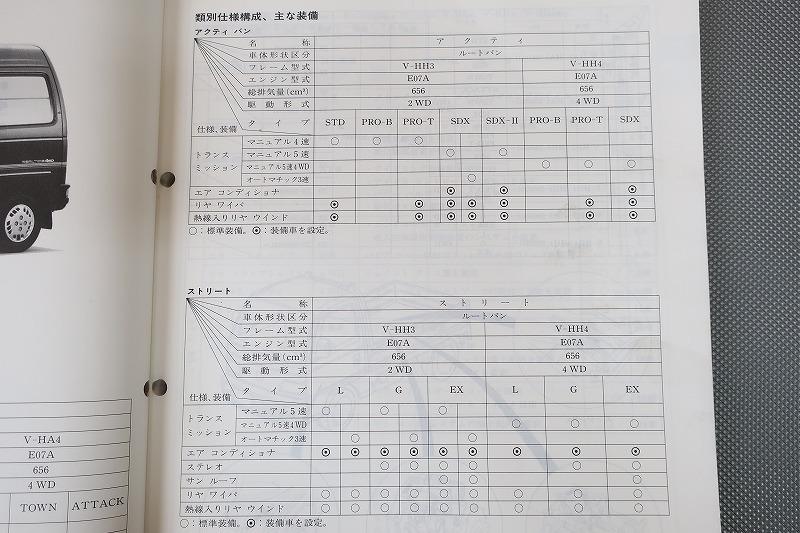 類別仕様構成、主な装備
アクティ バン
名 称 ア ク テ ィ
車体形状区分 ルートバン
フレーム型式 V-HH3 V-HH4
エンジン型式 E07A E07A
総排気量(cm³) 656 656
駆 動 形 式 2 WD 4 WD
仕様、装備 タ イ プ STD PRO-B PRO-T SDX SDX-II PRO-B PRO-T SDX
トランスミッション マニュアル4速 ○ ○ ○
マニュアル5速 ○ ○
マニュアル5速4WD ○ ○ ○
オートマチック3速 ○
エア コンディショナ ◉ ◉ ◉
リヤ ワイパ ◉ ◉ ◉ ◉ ◉ ◉ ◉
熱線入りリヤ ウインド ◉ ◉ ◉ ◉ ◉ ◉ ◉
○：標準装備。◉：装備車を設定。
ストリート
名 称 ス ト リ ー ト
車体形状区分 ルートバン
フレーム型式 V-HH3 V-HH4
エンジン型式 E07A E07A
総排気量(cm³) 656 656
駆 動 形 式 2 WD 4 WD
仕様、装備 タ イ プ L G EX L G EX
トランスミッション マニュアル5速 ○ ○ ○
マニュアル5速4WD ○ ○ ○
オートマチック3速 ○ ○ ○
エア コンディショナ ◉ ◉ ◉ ◉ ◉ ◉ ◉ ◉ ◉
ステレオ ○ ○ ○ ○ ○ ○
サン ルーフ ○ ○ ○
リヤ ワイパ ○ ○ ○ ○ ○ ○ ○ ○ ○
熱線入りリヤ ウインド ○ ○ ○ ○ ○ ○ ○ ○ ○
○：標準装備。◉：装備車を設定。
V-HA4
E07A
656
4 WD
TOWN ATTACK